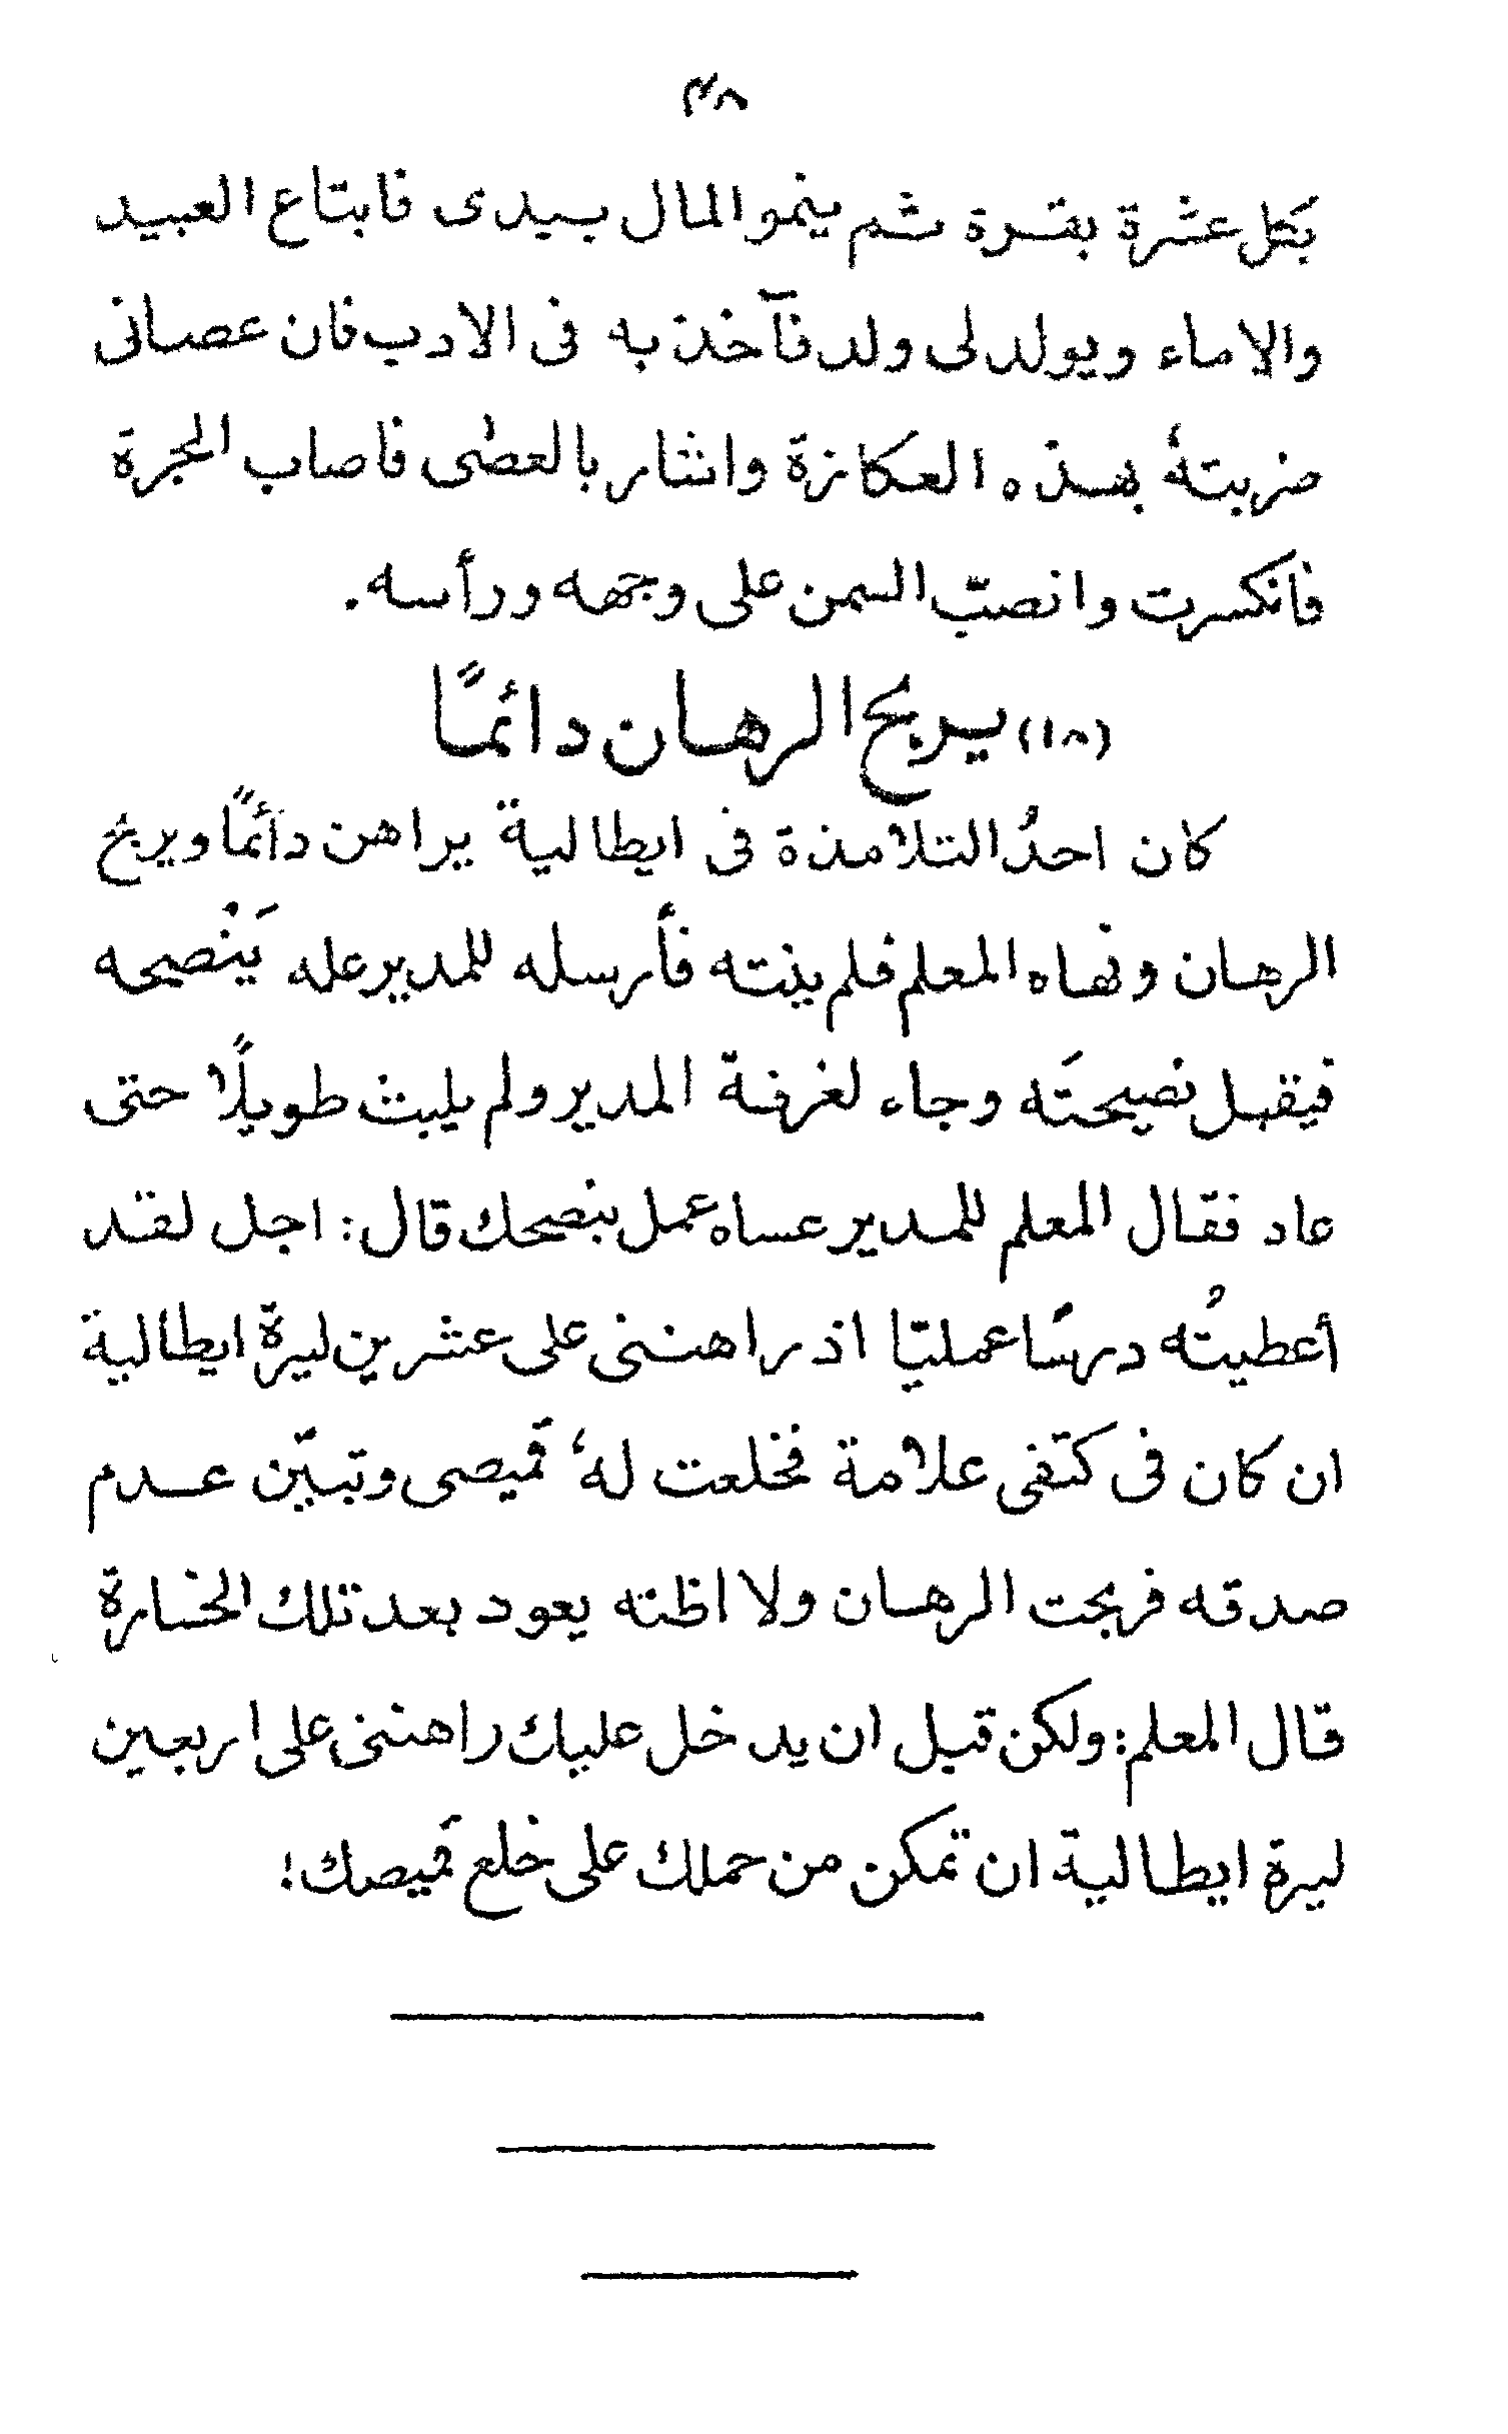 ٣٨
بكل عشرة بقرة ثم ينمو المال بيدى فابتاع العبيد
والاماء ويولد لى ولد فآخذ به فى الادب فان عصانى
ضربتهٗ بهذه العكازة واشار بالعصٰى فاصاب الجرة
فانكسرت وانصبّ السمن على وجهه ورأسه.
(١٨) يربح الرهان دائمًا
كان احدُ التلامذة فى ايطالية يراهن دائمًا ويربح
الرهان ونهاه المعلم فلم ينته فأرسله للمدير عله يَنْصحه
فيقبل نصيحتَه وجاء لغرفة المدير ولم يلبث طويلًا حتى
عاد فقال المعلم للمدير عساه عمل بنصحك قال: اجل لقد
أعطيتُه درسًا عمليّا اذ راهننى على عشرين ليرة ايطالية
ان كان فى كتفى علامة فخلعت لهٗ قميصى وتبيّن عدم
صدقه فربحت الرهان ولا اظنه يعود بعد تلك الخسارة
قال المعلم: ولكن قبل ان يدخل عليك راهننى على اربعين
ليرة ايطالية ان تمكن من حملك على خلع قميصك!